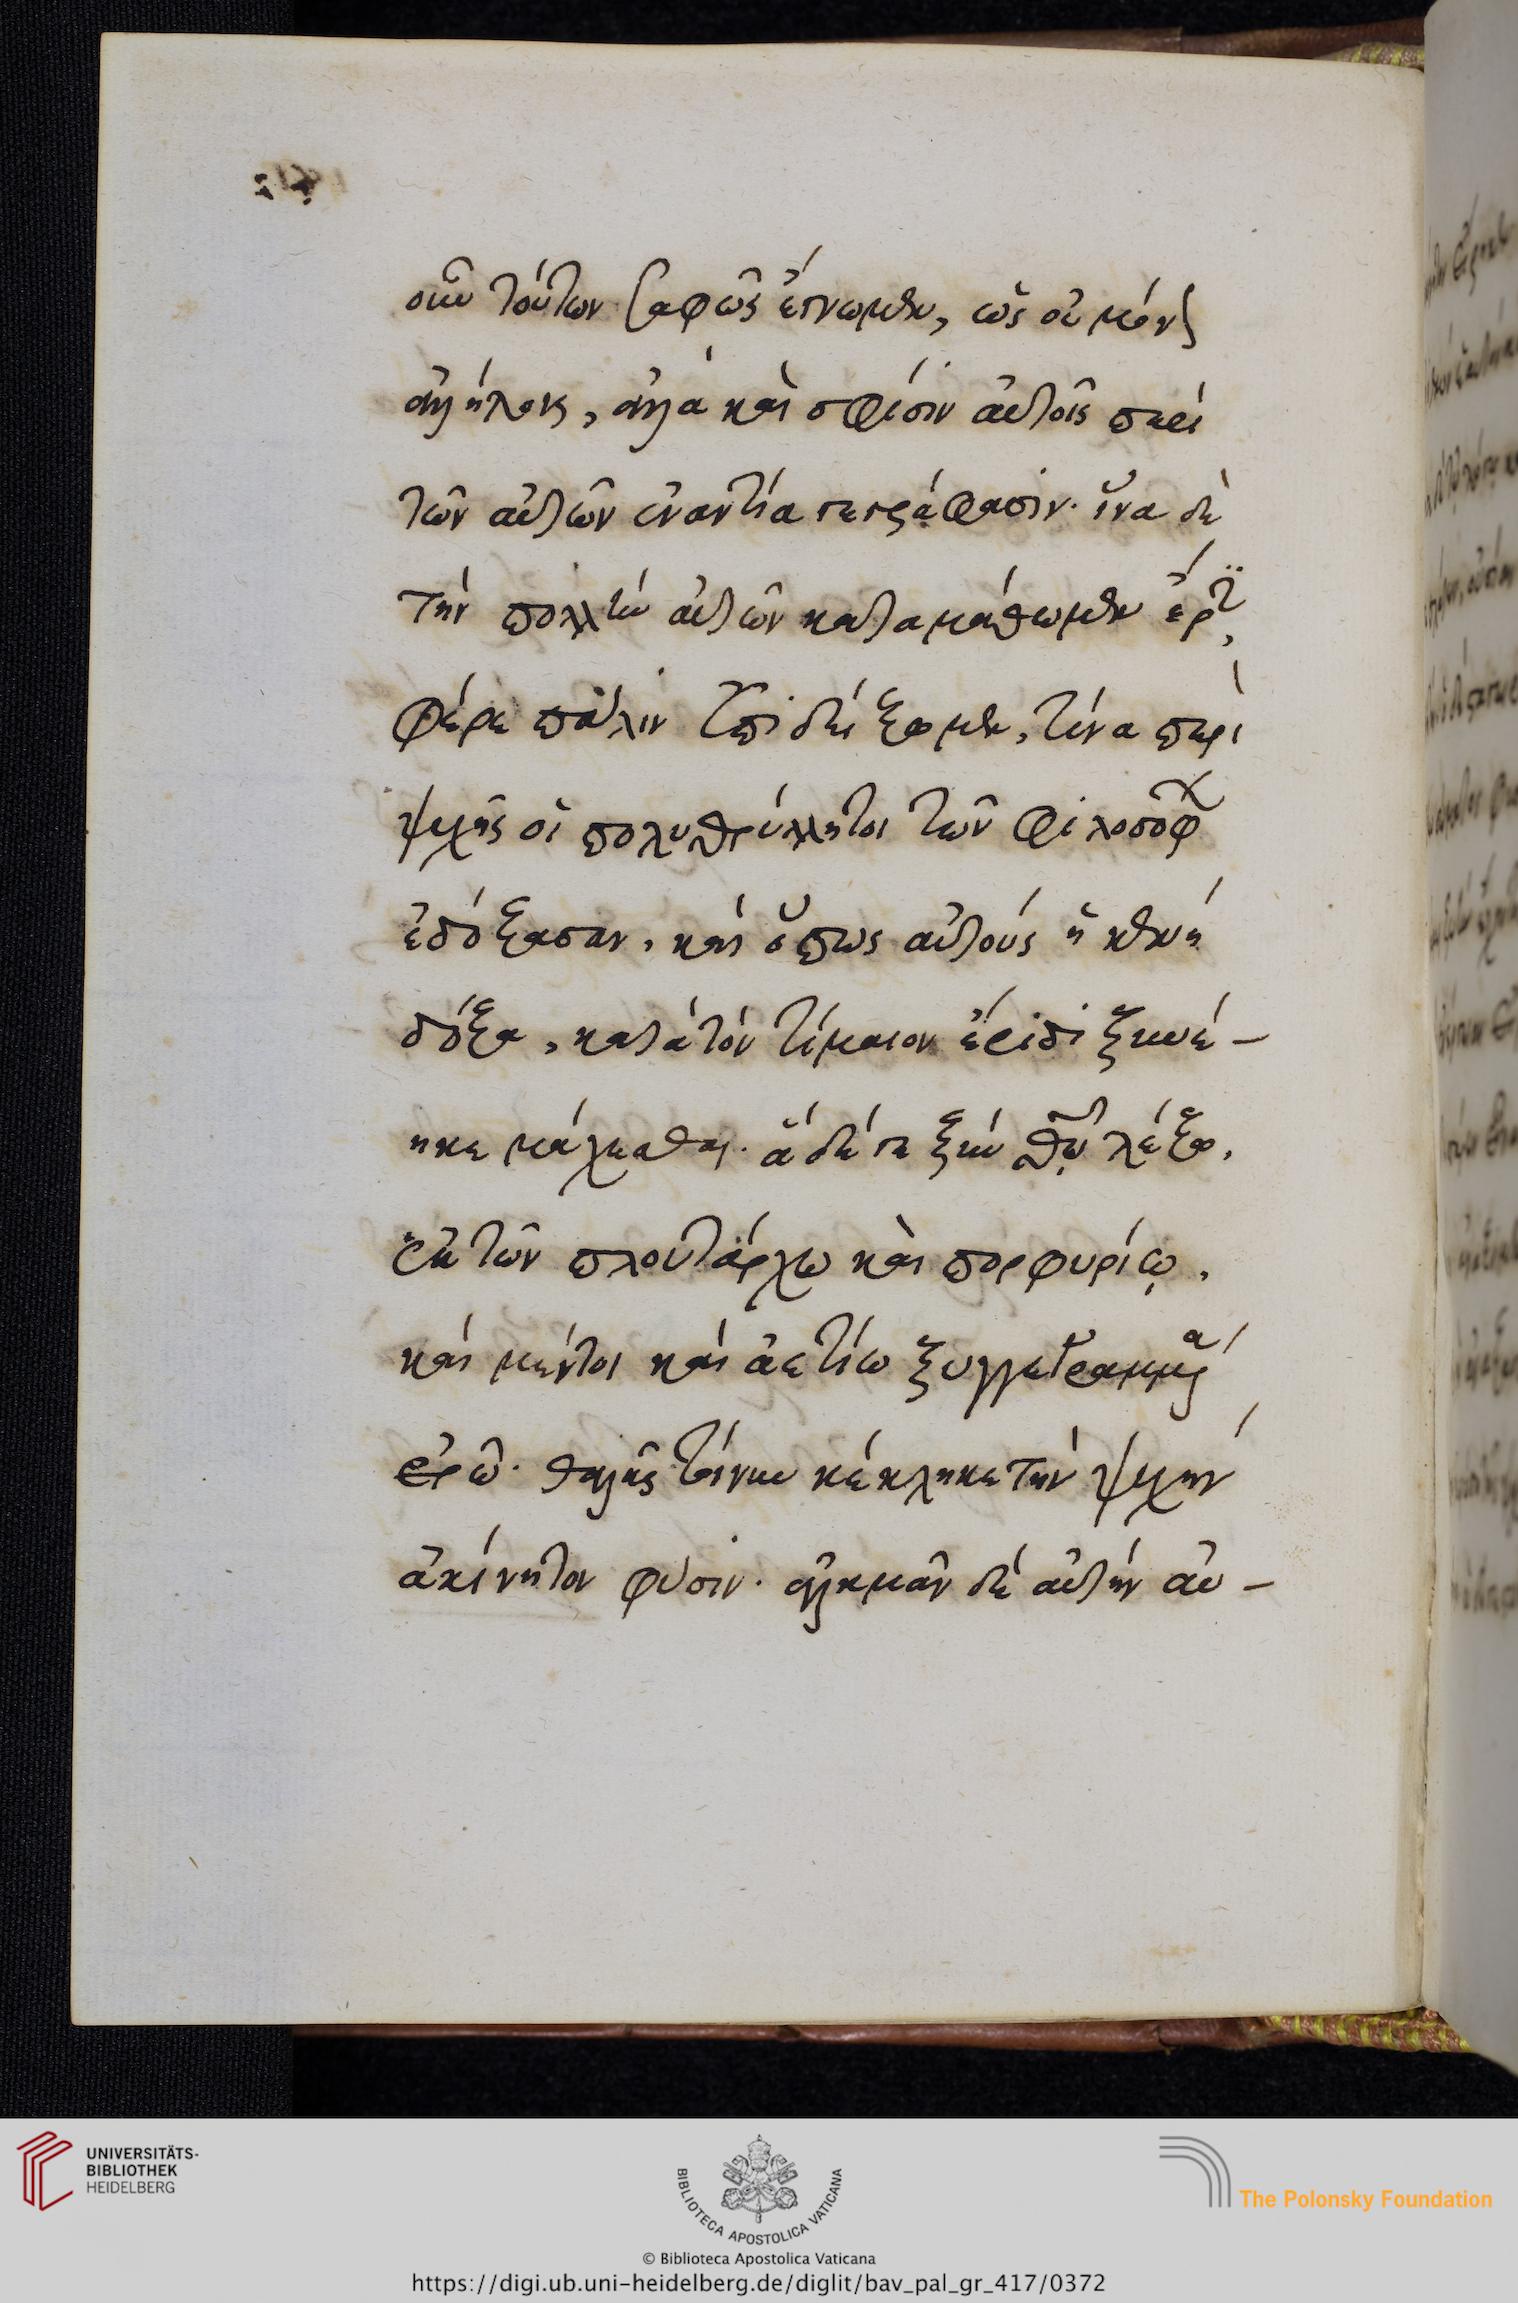 οὖν τούτων σαφῶς ἔγνωμεν, ὡς οὐ μόνον
ἀλλήλοις, ἀλλὰ καὶ σφίσιν αὐτοῖς περὶ
τῶν αὐτῶν ἐναντία γεγράφασιν. ἵνα δὲ
τὴν πολλὴν αὐτῶν καταμάθωμεν ἐρ
φέρε πάλιν ἐπιδείξωμεν, τίνα περὶ
ψυχῆς οἱ πολυθρύλλητοι τῶν φιλοσόφων
ἐδόξασαν, καὶ ὅπως αὐτοὺς ἡ κενὴ
δόξα, κατὰ τὸν τίμαιον ἔριδι ξυνέ-
ηκε μάχεσθαι. ἃ δέ γε ξὺν θεῷ λέξω,
ἐκ τῶν πλουτάρχω καὶ πορφυρίῳ,
καὶ μέντοι καὶ ἀετίω ξυγγεγραμμένα
ἐρῶ. θαλῆς τοίνυν κέκληκε τὴν ψυχὴν
ἀκίνητον φύσιν. ἀλκμὰν δὲ αὐτὴν αὐ-
UNIVERSITÄTS-
BIBLIOTHEK
HEIDELBERG
BIBLIOTECA APOSTOLICA VATICANA
© Biblioteca Apostolica Vaticana
The Polonsky Foundation
https://digi.ub.uni-heidelberg.de/diglit/bav_pal_gr_417/0372